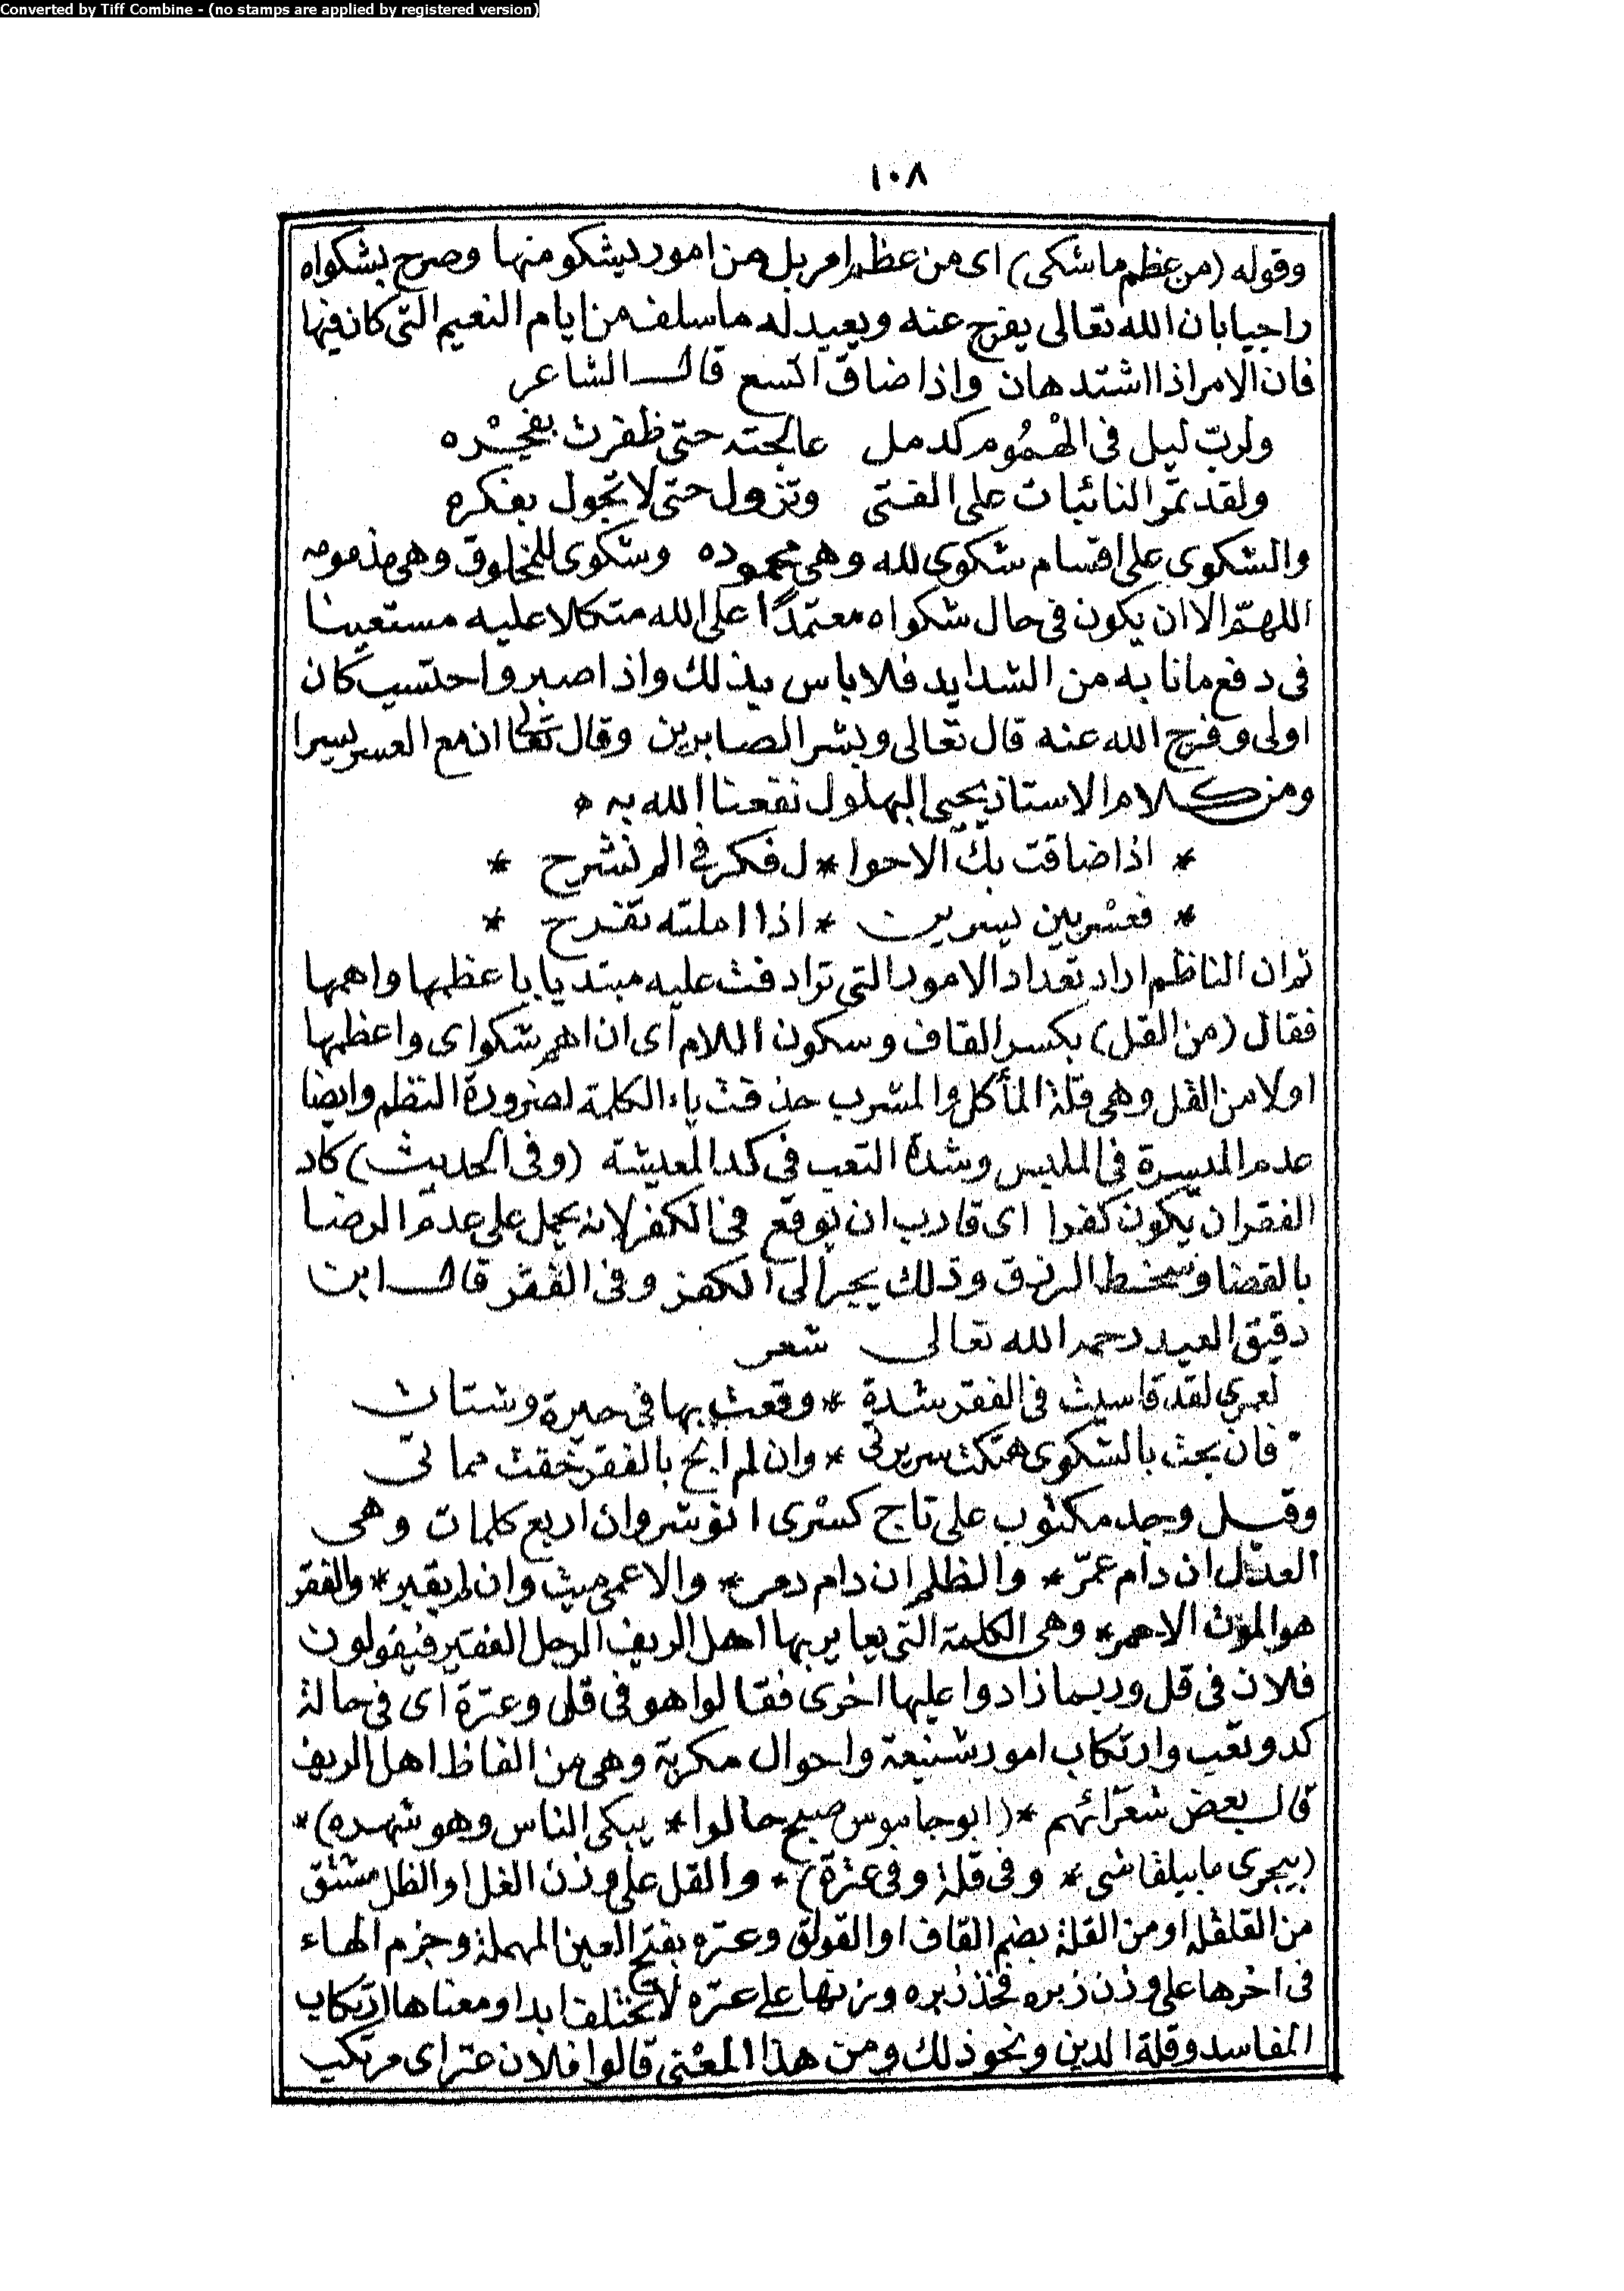 Converted by Tiff Combine - (no stamps are applied by registered version)
١٠٨
وقوله (من عظم ماشكى) اى من عظم امر بل من امور يشكو منها وصرح بشكواه
راجيا بان الله تعالى يفرج عنه ويعيد له ما سلف من ايام النعيم التى كان فيها
فان الامر اذا اشتد هان واذا ضاق اتسع قال الشاعر
ولرب ليل فى الهموم كدمل عالجته حتى ظفرت بفجره
ولقد تمر النائبات على الفتى وتزول حتى لا تجول بفكره
والشكوى على اقسام شكوى لله وهى محموده وشكوى للمخلوق وهى مذمومه
اللهمّ الا ان يكون فى حال شكواه معتمدًا على الله متكالا عليه مستعينا
فى دفع مانا به من الشدايد فلا باس بذلك واذا صبر واحتسب كان
اولى وفرج الله عنه قال تعالى وبشر الصابرين وقال تعالى ان مع العسر يسرا
ومن كلام الاستاذ يحيى البهلول نفعنا الله به ه
* اذا ضاقت بك الاحوا * ل فكر فى الم نشرح *
* فعسر بين يسرين * اذا املته تفرح *
ثم ان الناظم اراد تعداد الامور التى ترادفت عليه مبتديا باعظمها واهمها
فقال (من القل) بكسر القاف وسكون اللام اى ان اهم شكواى واعظمها
اولا من القل وهى قلة المأكل والمشرب حذفت ياء الكلمة لضرورة النظم وايضا
عدم الميسرة فى الملبس وشدة التعب فى كد المعيشة (وفى الحديث) كاد
الفقر ان يكون كفرا اى قارب ان يوقع فى الكفر لانه يحمل على عدم الرضا
بالقضا وسخط الرزق وذلك يجر الى الكفر وفى الفقر قال ابن
دقيق العيد رحمه الله تعالى شعر
لعمرى لقد قاسيت فى الفقر شدة * وقعت بها فى حيرة وشتات
فان بحت بالشكوى هتكت سريرتى * وان لم ابح بالفقر خفت مماتى
وقيل وجد مكتوب على تاج كسْرى انوشروان اربع كلمات وهى
العدل ان دام عمّر * والظلم ان دام دمر * والاعمى ميت وان لم يقبر * والفقر
هو الموت الاحمر * وهى الكلمة التى يعاير بها اهل الريف الرجل الفقير فيقولون
فلان فى قل وربما زادوا عليها اخرى فقالوا هو فى قل وعترة اى فى حالة
كد وتعب وارتكاب امور شنيعة واحوال مكربة وهى من الفاظ اهل الريف
قال بعض شعرائهم * (ابو جاموس صبح حالوا * يبكى الناس وهو شهده) *
(بيجرى ما بيلقاشى * وفى قلة وفى عترة) * والقل على وزن الغل او الظل مشتق
من القلقله او من القلة بضم القاف او القولق وعتره بفتح العين المهملة وجزم الهاء
فى اخرها على وزن زبره فخذ زبره وزنها على عتره لا تختلف ابدا ومعناها ارتكاب
المفاسد وقلة الدين ونحو ذلك ومن هذا المعْنى قالوا فلان عتر اى مرتكب